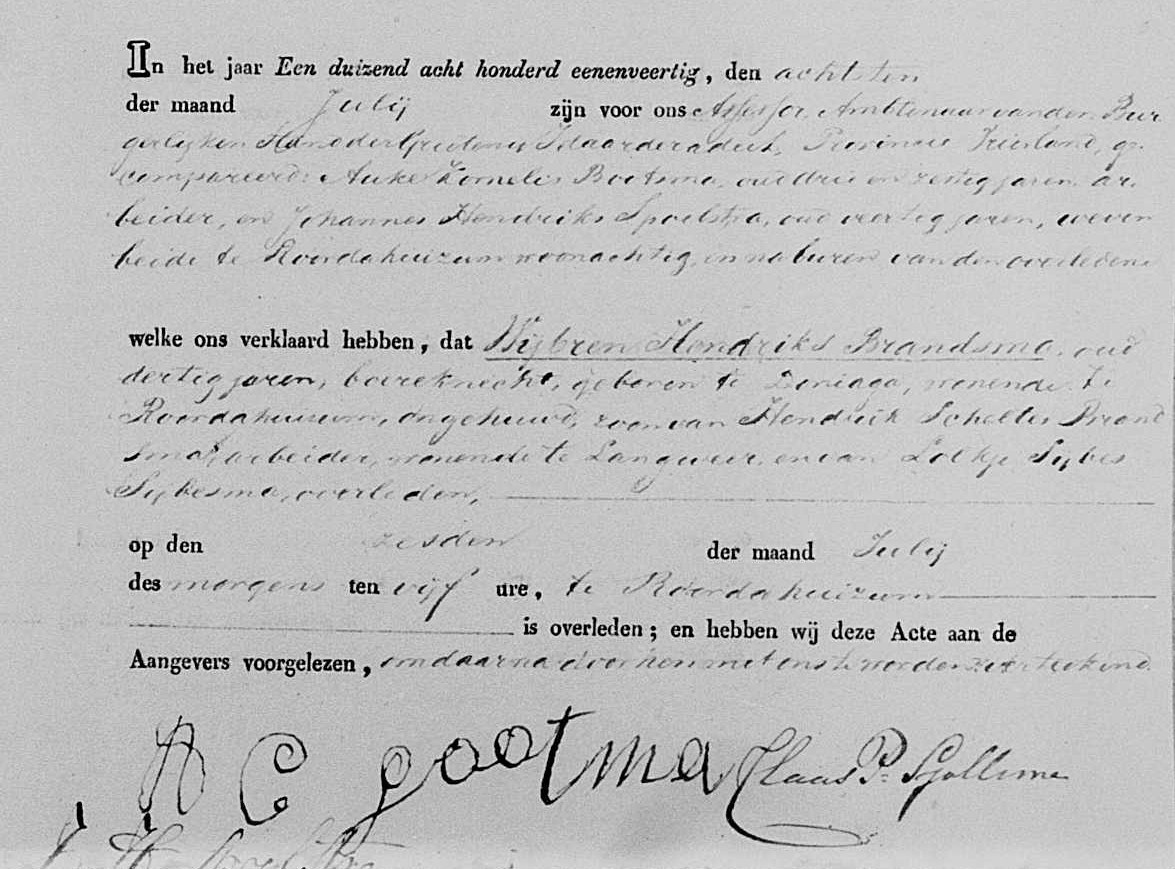 In het jaar Een duizend acht honderd eenenveertig, den achtsten
der maand Julij zijn voor ons Assessor, Ambtenaar van den Bur
gerlijken Stand der Grietenij Idaarderadeel, Provincie Vriesland, ge-
compareerd: Auke Kornelis Bootsma, oud drie en zestig jaren, ar-
beider, en Johannes Hendriks Spoelstra, oud veertig jaren, wever
beide te Roordahuizum woonachtig, en naburen van den overledene
welke ons verklaard hebben, dat Wijbren Hendriks Brandsma, oud
dertig jaren, boereknecht, geboren te Doniaga, wonende te
Roordahuizum, ongehuwd, zoon van Hendrik Scheltes Brand
sma, arbeider, wonende te Langweer, en van Lolkje Sijbes
Sijbesma, overleden,
op den zesden der maand Julij
des morgens ten vijf ure, te Roordahuizum
is overleden; en hebben wij deze Acte aan de
Aangevers voorgelezen, om daarna door hen met ons te worden verteekend.
A C Bootma Claas P. Sjollema
J H